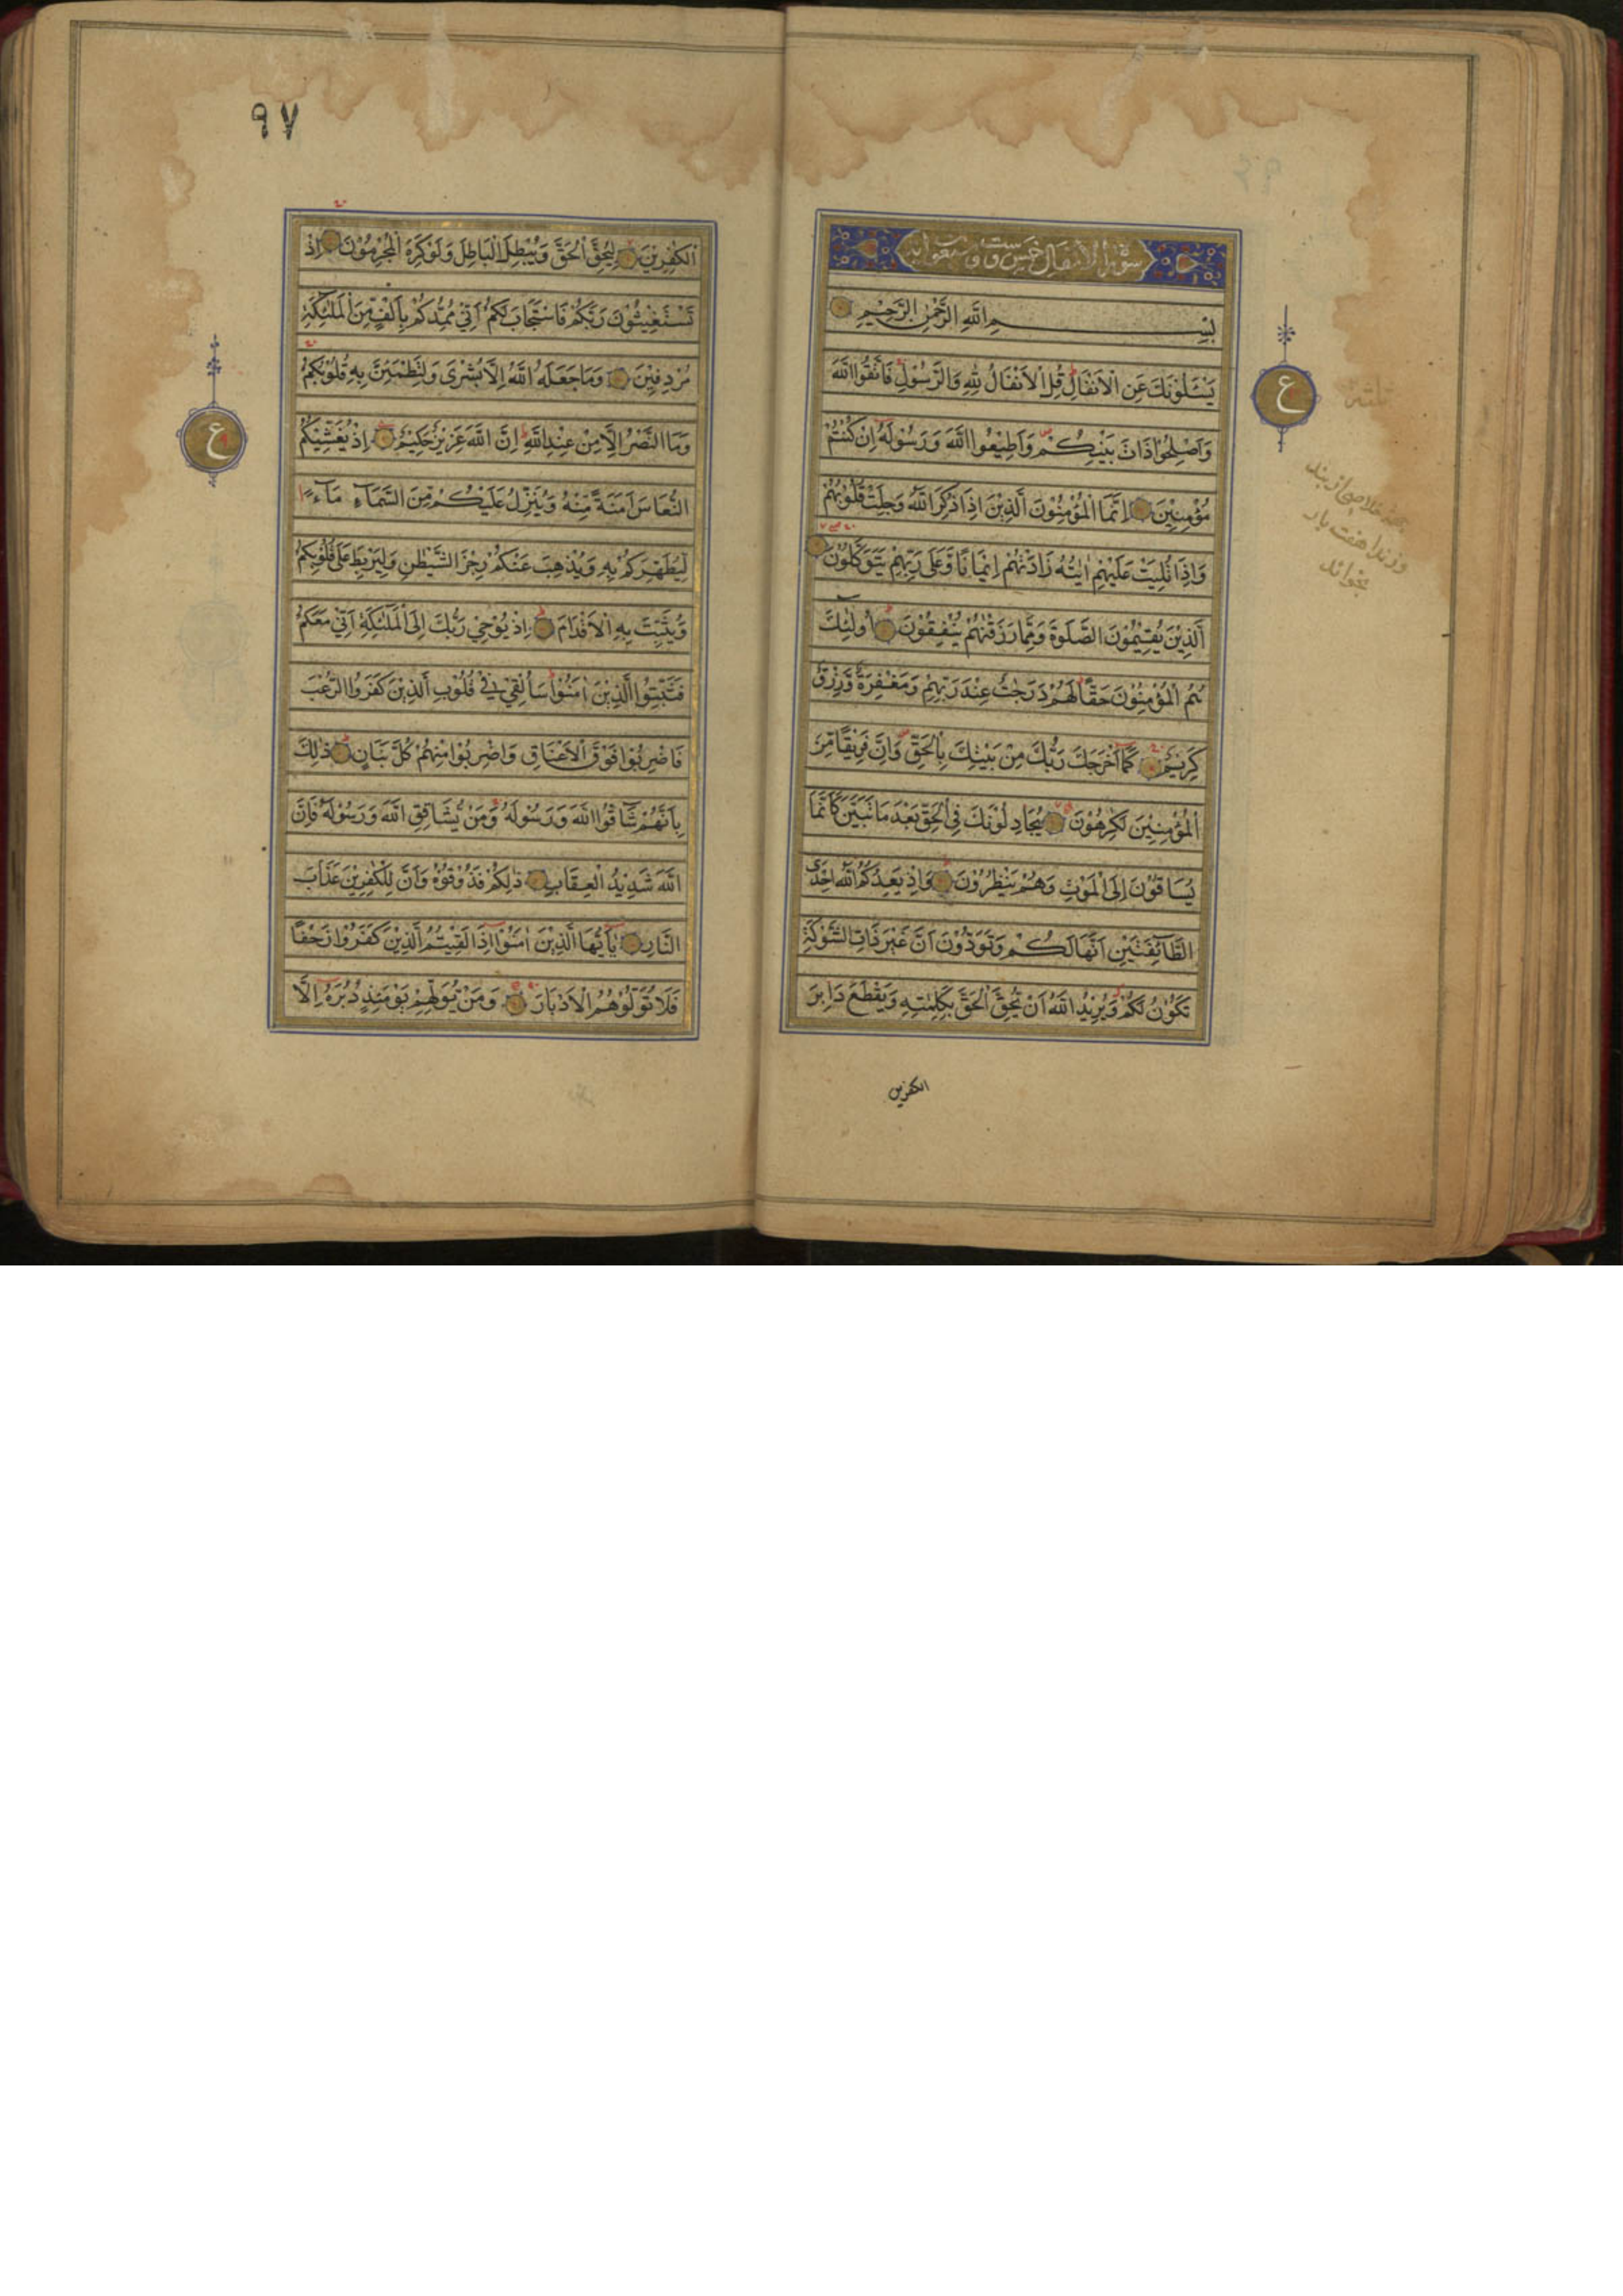 سورة الانفال خمس وسبعون اية
بسم الله الرحمن الرحيم
يَسْـَٔلُوْنَكَ عَنِ الْاَنْفَالِ قُلِ الْاَنْفَالُ لِلّٰهِ وَالرَّسُوْلِ فَاتَّقُوا اللّٰهَ
وَاَصْلِحُوْا ذَاتَ بَيْنِكُمْ وَاَطِيْعُوا اللّٰهَ وَرَسُوْلَهٗ اِنْ كُنْتُمْ
مُؤْمِنِيْنَ اِنَّمَا الْمُؤْمِنُوْنَ الَّذِيْنَ اِذَا ذُكِرَ اللّٰهُ وَجِلَتْ قُلُوْبُهُمْ
وَاِذَا تُلِيَتْ عَلَيْهِمْ اٰيٰتُهٗ زَادَتْهُمْ اِيْمَانًا وَّعَلٰى رَبِّهِمْ يَتَوَكَّلُوْنَ
الَّذِيْنَ يُقِيْمُوْنَ الصَّلٰوةَ وَمِمَّا رَزَقْنٰهُمْ يُنْفِقُوْنَ اُولٰئِكَ
هُمُ الْمُؤْمِنُوْنَ حَقًّا لَهُمْ دَرَجٰتٌ عِنْدَ رَبِّهِمْ وَمَغْفِرَةٌ وَّرِزْقٌ
كَرِيْمٌ كَمَا اَخْرَجَكَ رَبُّكَ مِنْ بَيْتِكَ بِالْحَقِّ وَاِنَّ فَرِيْقًا مِنَ
الْمُؤْمِنِيْنَ لَكٰرِهُوْنَ يُجَادِلُوْنَكَ فِي الْحَقِّ بَعْدَ مَا تَبَيَّنَ كَاَنَّمَا
يُسَاقُوْنَ اِلَى الْمَوْتِ وَهُمْ يَنْظُرُوْنَ وَاِذْ يَعِدُكُمُ اللّٰهُ اِحْدَى
الطَّآئِفَتَيْنِ اَنَّهَا لَكُمْ وَتَوَدُّوْنَ اَنَّ غَيْرَ ذَاتِ الشَّوْكَةِ
تَكُوْنُ لَكُمْ وَيُرِيْدُ اللّٰهُ اَنْ يُحِقَّ الْحَقَّ بِكَلِمٰتِهٖ وَيَقْطَعَ دَابِرَ
الكفرين
ع
بجهة خلاصى از بند
وزندا هفت بار
بخواند
٩٧
الْكٰفِرِيْنَ لِيُحِقَّ الْحَقَّ وَيُبْطِلَ الْبَاطِلَ وَلَوْ كَرِهَ الْمُجْرِمُوْنَ اِذْ
تَسْتَغِيْثُوْنَ رَبَّكُمْ فَاسْتَجَابَ لَكُمْ اَنِّيْ مُمِدُّكُمْ بِاَلْفٍ مِنَ الْمَلٰئِكَةِ
مُرْدِفِيْنَ وَمَا جَعَلَهُ اللّٰهُ اِلَّا بُشْرٰى وَلِتَطْمَئِنَّ بِهٖ قُلُوْبُكُمْ
وَمَا النَّصْرُ اِلَّا مِنْ عِنْدِ اللّٰهِ اِنَّ اللّٰهَ عَزِيْزٌ حَكِيْمٌ اِذْ يُغَشِّيْكُمُ
النُّعَاسَ اَمَنَةً مِّنْهُ وَيُنَزِّلُ عَلَيْكُمْ مِّنَ السَّمَآءِ مَآءً
لِيُطَهِّرَكُمْ بِهٖ وَيُذْهِبَ عَنْكُمْ رِجْزَ الشَّيْطٰنِ وَلِيَرْبِطَ عَلٰى قُلُوْبِكُمْ
وَيُثَبِّتَ بِهِ الْاَقْدَامَ اِذْ يُوْحِيْ رَبُّكَ اِلَى الْمَلٰئِكَةِ اَنِّيْ مَعَكُمْ
فَثَبِّتُوا الَّذِيْنَ اٰمَنُوْا سَاُلْقِيْ فِيْ قُلُوْبِ الَّذِيْنَ كَفَرُوا الرُّعْبَ
فَاضْرِبُوْا فَوْقَ الْاَعْنَاقِ وَاضْرِبُوْا مِنْهُمْ كُلَّ بَنَانٍ ذٰلِكَ
بِاَنَّهُمْ شَآقُّوا اللّٰهَ وَرَسُوْلَهٗ وَمَنْ يُّشَاقِقِ اللّٰهَ وَرَسُوْلَهٗ فَاِنَّ
اللّٰهَ شَدِيْدُ الْعِقَابِ ذٰلِكُمْ فَذُوْقُوْهُ وَاَنَّ لِلْكٰفِرِيْنَ عَذَابَ
النَّارِ يٰٓاَيُّهَا الَّذِيْنَ اٰمَنُوْا اِذَا لَقِيْتُمُ الَّذِيْنَ كَفَرُوْا زَحْفًا
فَلَا تُوَلُّوْهُمُ الْاَدْبَارَ وَمَنْ يُّوَلِّهِمْ يَوْمَئِذٍ دُبُرَهٗ اِلَّا
ع